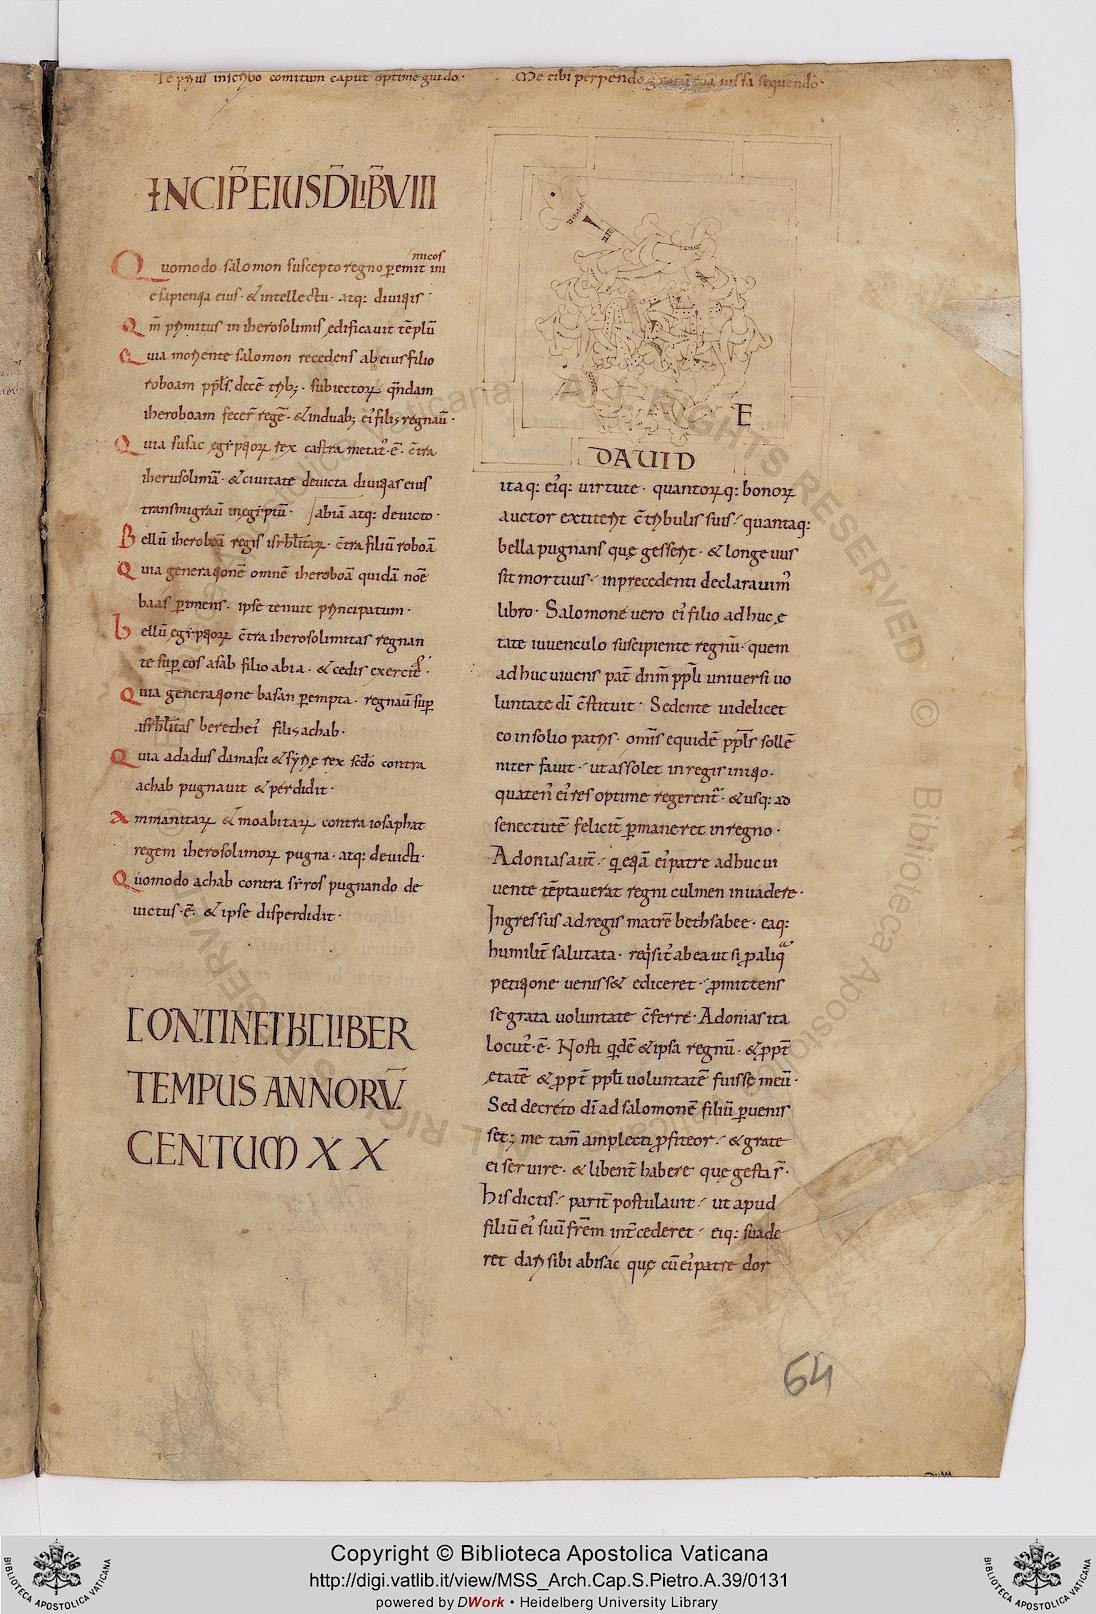 Te prius inscribo comitum caput optime guido·
Me tibi perpendo iussa sequendo·
INCIP̄ EIUSD̄ LIB̄ VIII
Quomodo salomon suscepto regno ꝑemit ini
micos
e sapientia eius· & intellectu· atq: diuitiis·
Qm̄ primitus in iherosolimis edificauit tēplū
Quia moriente salomon recedens ab eius filio
roboam ppl̄s decē trib;· subiectoꝝ quendam
iheroboam fecer̄ regē· & induab; ei᾽ filiis regnaū·
Quia susac egiptioꝝ rex castra metat᷑·ē· c̄tra
iherusolimā· & ciuitate deuicta diuitias eius
transmigraū in egiptū·
abiā atq: deuicto·
Bellū iheroboā regis isrl̄itaꝝ· c̄tra filiū roboā
Quia generationē omnē iheroboā quidā noē
baas ꝑimens· ipse tenuit principatum·
bellū egiptioꝝ c̄tra iherosolimitas regnan
te suꝑ eos asab filio abia· & cedis exercit᷑·
Quia generatione basan ꝑempta· regnaū suꝑ
isrl̄itas filius achab·
Quia adadus damasci & syrie rex sēdo contra
achab pugnauit & perdidit·
Ammanitaꝝ & moabitaꝝ contra iosaphat
regem iherosolimoꝝ pugna· atq: deuicti·
Quomodo achab contra syros pugnando de
uictus·ē· & ipse disperdidit·
CONTINET H̄ C LIBER
TEMPUS ANNORŪ
CENTUM XX
E
DAUID
itaq: ei᾽q: uirtute· quantoꝝq: bonoꝝ
auctor extiterit c̄tribulis suis· quantaq:
bella pugnans quę gesserit· & longeuus
sit mortuus· in precedenti declarauim᾽
libro· Salomone uero ei᾽ filio adhuc ę
tate iuuenculo suscipiente regnū· quem
adhuc uiuens pat̄ dnm̄ ppl̄i uniuersi uo
luntate dī c̄stituit· Sedente uidelicet
eo in solio patris· om̄s equidē ppl̄s sollē
niter fauit· ut assolet in regis initio·
quaten᾽ ei᾽ res optime regerent᷑· & usq: ad
senectutē felicit̄ ꝑmaneret in regno·
Adonias aut̄· qi etiā ei᾽ patre adhuc ui
uente tēptauerat regni culmen inuadere·
Ingressus ad regis matrē bethsabee· eaq:
humilit̄ salutata· reqisit᷑ ab ea ut si ꝓ aliqa
petitione uenisset ediceret· ꝓmittens
se grata uoluntate c̄ferre· Adonias ita
locut᷑·ē· Nosti qidē & ipsa regnū· & ꝓpt̄
etatē & ꝓpt̄ ppl̄i uoluntatē fuisse meū·
Sed decreto dī ad salomonē filiū ꝑuenis
set; me tam̄ amplecti ꝓfiteor· & grate
ei seruire· & libent̄ habere quę gesta s̄·
his dictis· parit̄ postulauit· ut apud
filiū ei᾽ suū frēm int̄cederet· eiq: suade
ret dari sibi abisac quę cū ei᾽ patre dor
64
Copyright © Biblioteca Apostolica Vaticana
http://digi.vatlib.it/view/MSS_Arch.Cap.S.Pietro.A.39/0131
powered by DWork • Heidelberg University Library
BIBLIOTECA APOSTOLICA VATICANA
BIBLIOTECA APOSTOLICA VATICANA
© Biblioteca Apostolica Vaticana ALL RIGHTS RESERVED © Biblioteca Apostolica Vaticana ALL RIGHTS RESERVED